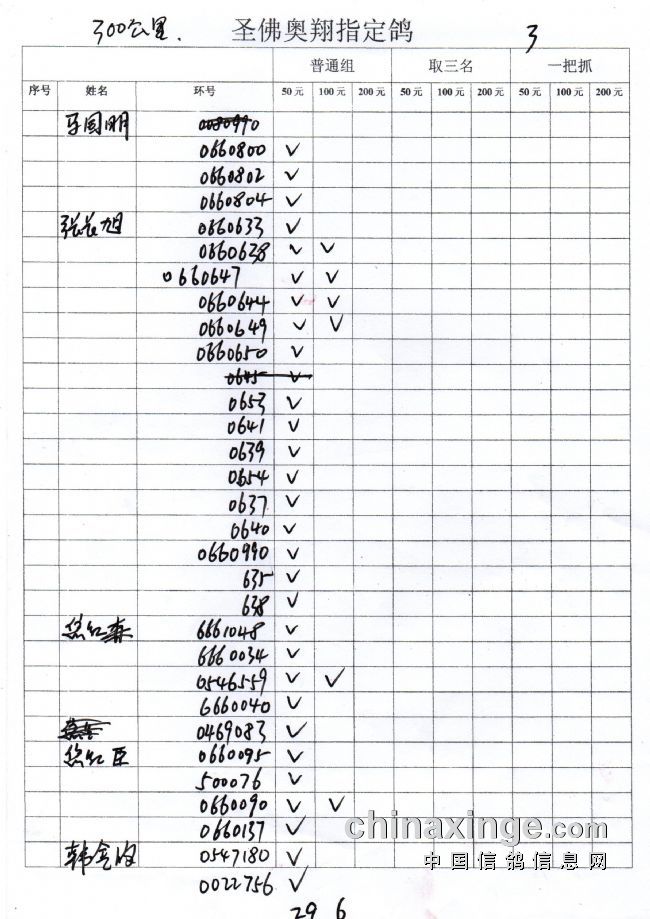 300公里. 圣佛奥翔指定鸽 3
普通组 取三名 一把抓
序号 姓名 环号 50元 100元 200元 50元 100元 200元 50元 100元 200元
0660800 ✓
0660802 ✓
0660804 ✓
张长旭 0660633 ✓
0660638 ✓ ✓
0660647 ✓ ✓
0660644 ✓ ✓
0660649 ✓ ✓
0660650 ✓
0645 ✓
0653 ✓
0641 ✓
0639 ✓
0654 ✓
0637 ✓
0640 ✓
0660990 ✓
635 ✓
638 ✓
6661048 ✓
6660034 ✓
0546559 ✓ ✓
6660040 ✓
0469083 ✓
0660095 ✓
500076 ✓
0660090 ✓ ✓
0660137 ✓
0547180 ✓
0022756 ✓
29 6
chinaxinge.com
中国信鸽信息网